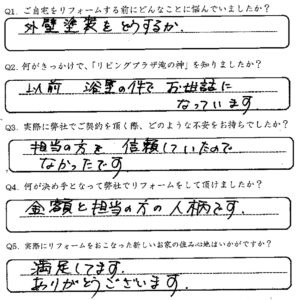 Q1. ご自宅をリフォームする前にどんなことに悩んでいましたか？
外壁塗装をどうするか.
Q2. 何がきっかけで、「リビングプラザ滝の神」を知りましたか？
以前 浴室の件で お世話に
なっています
Q3. 実際に弊社でご契約を頂く際、どのような不安をお持ちでしたか？
担当の方を 信頼していたので
なかったです
Q4. 何が決め手となって弊社でリフォームをして頂けましたか？
金額と担当の方の人柄です.
Q5. 実際にリフォームをおこなった新しいお家の住み心地はいかがですか？
満足してます.
ありがとうございます.